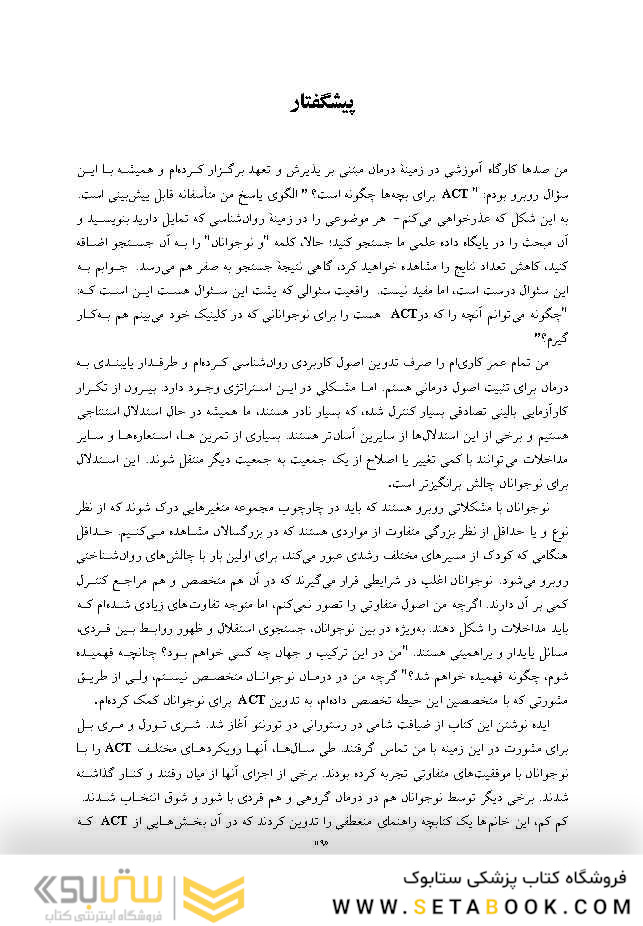 پیشگفتار
من صدها کارگاه آموزشی در زمینهٔ درمان مبتنی بر پذیرش و تعهد برگزار کرده‌ام و همیشه با این
سؤال روبرو بودم: "ACT برای بچه‌ها چگونه است؟" الگوی پاسخ من متأسفانه قابل پیش‌بینی است.
به این شکل که عذرخواهی می‌کنم- هر موضوعی را در زمینهٔ روان‌شناسی که تمایل دارید بنویسید و
آن مبحث را در پایگاه داده علمی ما جستجو کنید؛ حالا، کلمه "و نوجوانان" را به آن جستجو اضافه
کنید، کاهش تعداد نتایج را مشاهده خواهید کرد، گاهی نتیجهٔ جستجو به صفر هم می‌رسد. جوابم به
این سئوال درست است، اما مفید نیست. واقعیت سئوالی که پشت این سئوال هست این است که:
"چگونه می‌توانم آنچه را که درACT هست را برای نوجوانانی که در کلینیک خود می‌بینم هم به‌کار
گیرم؟"
من تمام عمر کاری‌ام را صرف تدوین اصول کاربردی روان‌شناسی کرده‌ام و طرفدار پایبندی به
درمان برای تثبیت اصول درمانی هستم. اما مشکلی در این استراتژی وجود دارد. بیرون از تکرار
کارآزمایی بالینی تصادفی بسیار کنترل شده، که بسیار نادر هستند، ما همیشه در حال استدلال استنتاجی
هستیم و برخی از این استدلال‌ها از سایرین آسان‌تر هستند. بسیاری از تمرین ها، استعاره‌ها و سایر
مداخلات می‌توانند با کمی تغییر یا اصلاح از یک جمعیت به جمعیت دیگر منتقل شوند. این استدلال
برای نوجوانان چالش برانگیزتر است.
نوجوانان با مشکلاتی روبرو هستند که باید در چارچوب مجموعه متغیرهایی درک شوند که از نظر
نوع و یا حداقل از نظر بزرگی متفاوت از مواردی هستند که در بزرگسالان مشاهده می‌کنیم. حداقل
هنگامی که کودک از مسیرهای مختلف رشدی عبور می‌کند، برای اولین بار با چالش‌های روان‌شناختی
روبرو می‌شود. نوجوانان اغلب در شرایطی قرار می‌گیرند که در آن هم متخصص و هم مراجع کنترل
کمی بر آن دارند. اگرچه من اصول متفاوتی را تصور نمی‌کنم، اما متوجه تفاوت‌های زیادی شده‌ام که
باید مداخلات را شکل دهند. به‌ویژه در بین نوجوانان، جستجوی استقلال و ظهور روابط بین فردی،
مسائل پایدار و پراهمیتی هستند. "من در این ترکیب و جهان چه کسی خواهم بود؟ چنانچه فهمیده
شوم، چگونه فهمیده خواهم شد؟" گرچه من در درمان نوجوانان متخصص نیستم، ولی از طریق
مشورتی که با متخصصین این حیطه تخصص داده‌ام، به تدوین ACT برای نوجوانان کمک کرده‌ام.
ایده نوشتن این کتاب از ضیافت شامی در رستورانی در تورنتو آغاز شد. شری تورل و مری بل
برای مشورت در این زمینه با من تماس گرفتند. طی سال‌ها، آنها رویکردهای مختلف ACT را با
نوجوانان با موفقیت‌های متفاوتی تجربه کرده بودند. برخی از اجزای آنها از میان رفتند و کنار گذاشته
شدند. برخی دیگر توسط نوجوانان هم در درمان گروهی و هم فردی با شور و شوق انتخاب شدند.
کم کم، این خانم‌ها یک کتابچه راهنمای منعطفی را تدوین کردند که در آن بخش‌هایی از ACT که
«۹»
فروشگاه کتاب پزشکی ستابوک
WWW.SETABOOK.COM
ستابوک
فروشگاه اینترنتی کتاب